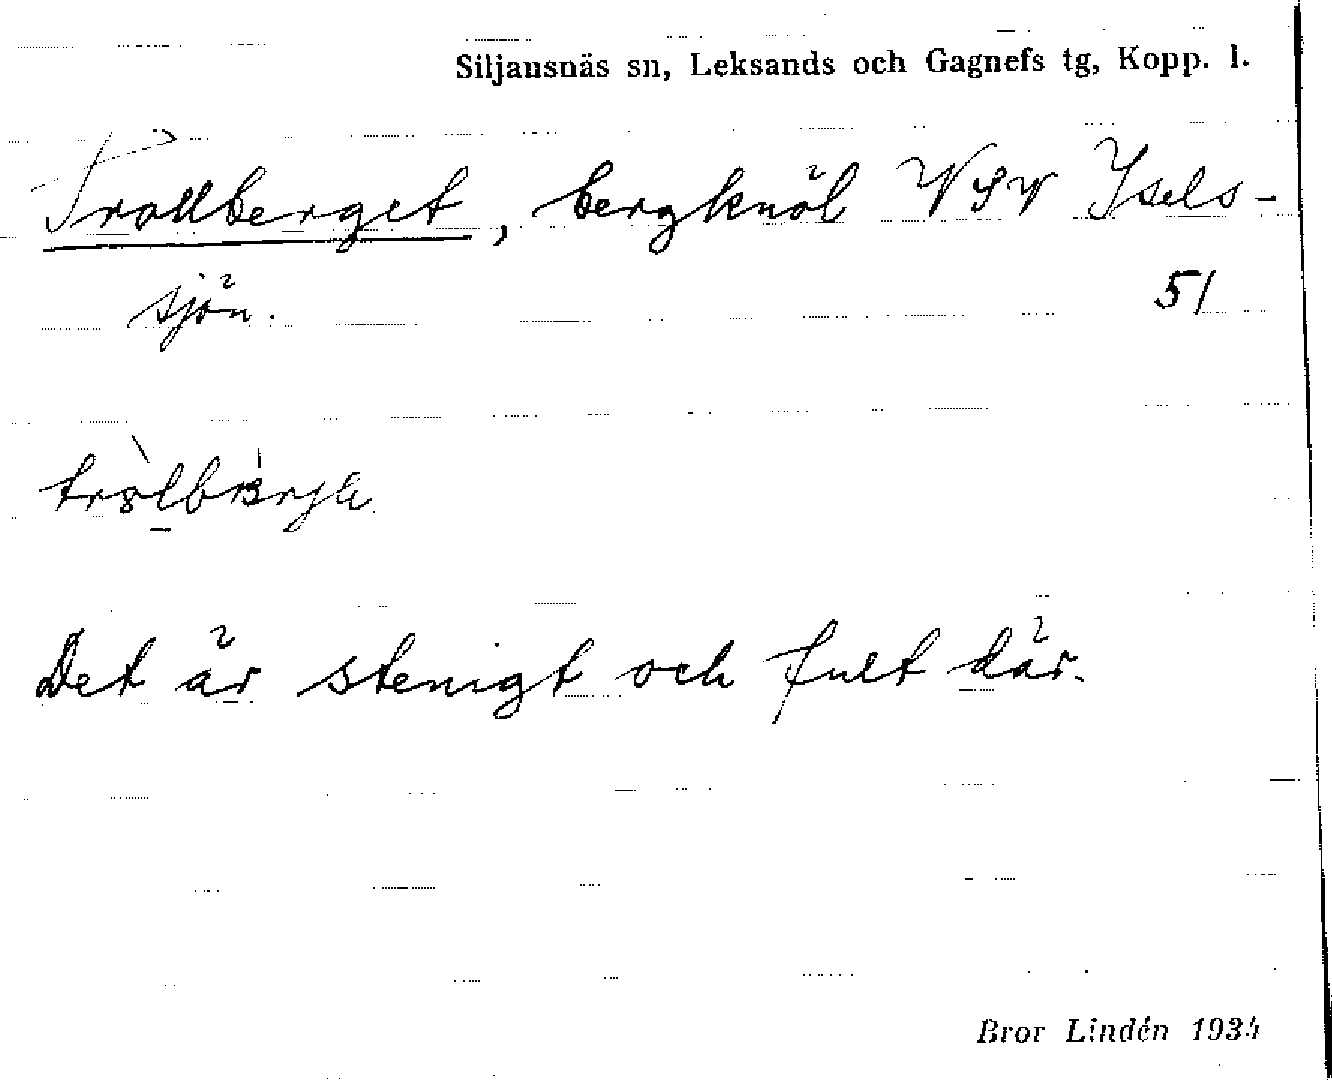 Siljansnäs sn, Leksands och Gagnefs tg, Kopp. l.
Trollberget, bergknöl VSV Ysels-
sjön. 51
Det är stenigt och fult där.
Bror Lindén 1934